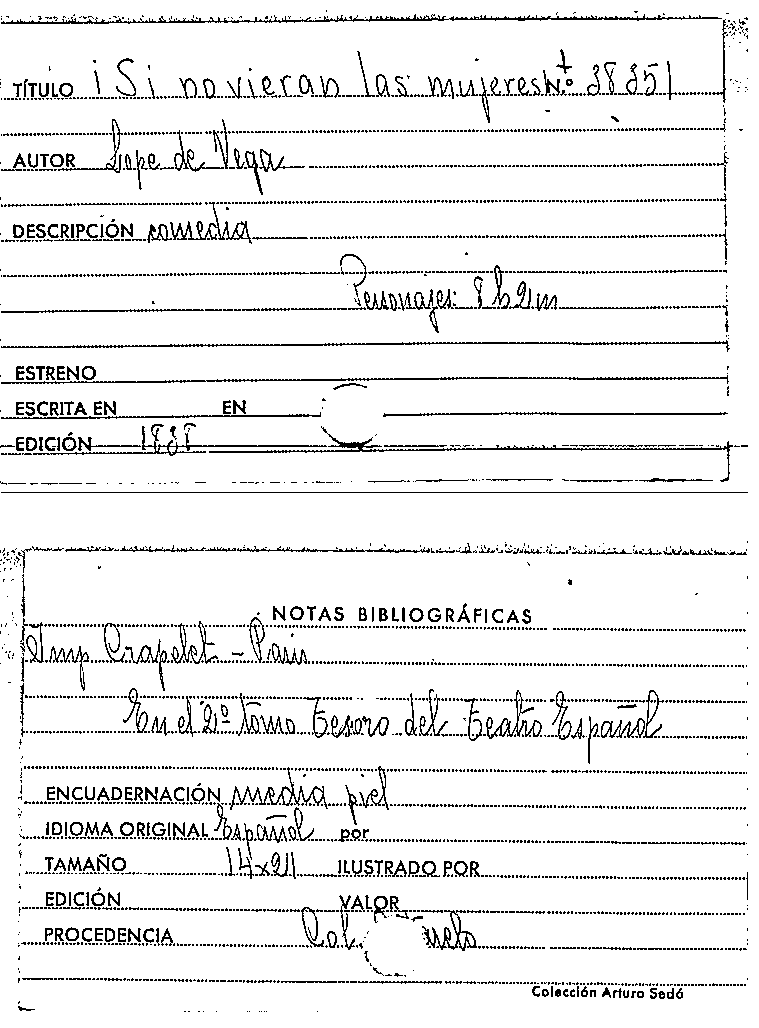 TÍTULO ¡Si no vieran las mujeres! N.º 38351
AUTOR Lope de Vega
DESCRIPCIÓN comedia
Personajes: 8 h 2 m
ESTRENO
ESCRITA EN EN
EDICIÓN 1838
NOTAS BIBLIOGRÁFICAS
Imp Crapelet - París
En el 2º tomo Tesoro del Teatro Español
ENCUADERNACIÓN media piel
IDIOMA ORIGINAL Español por
TAMAÑO 14x21 ILUSTRADO POR
EDICIÓN VALOR
PROCEDENCIA Col.
Colección Arturo Sedó